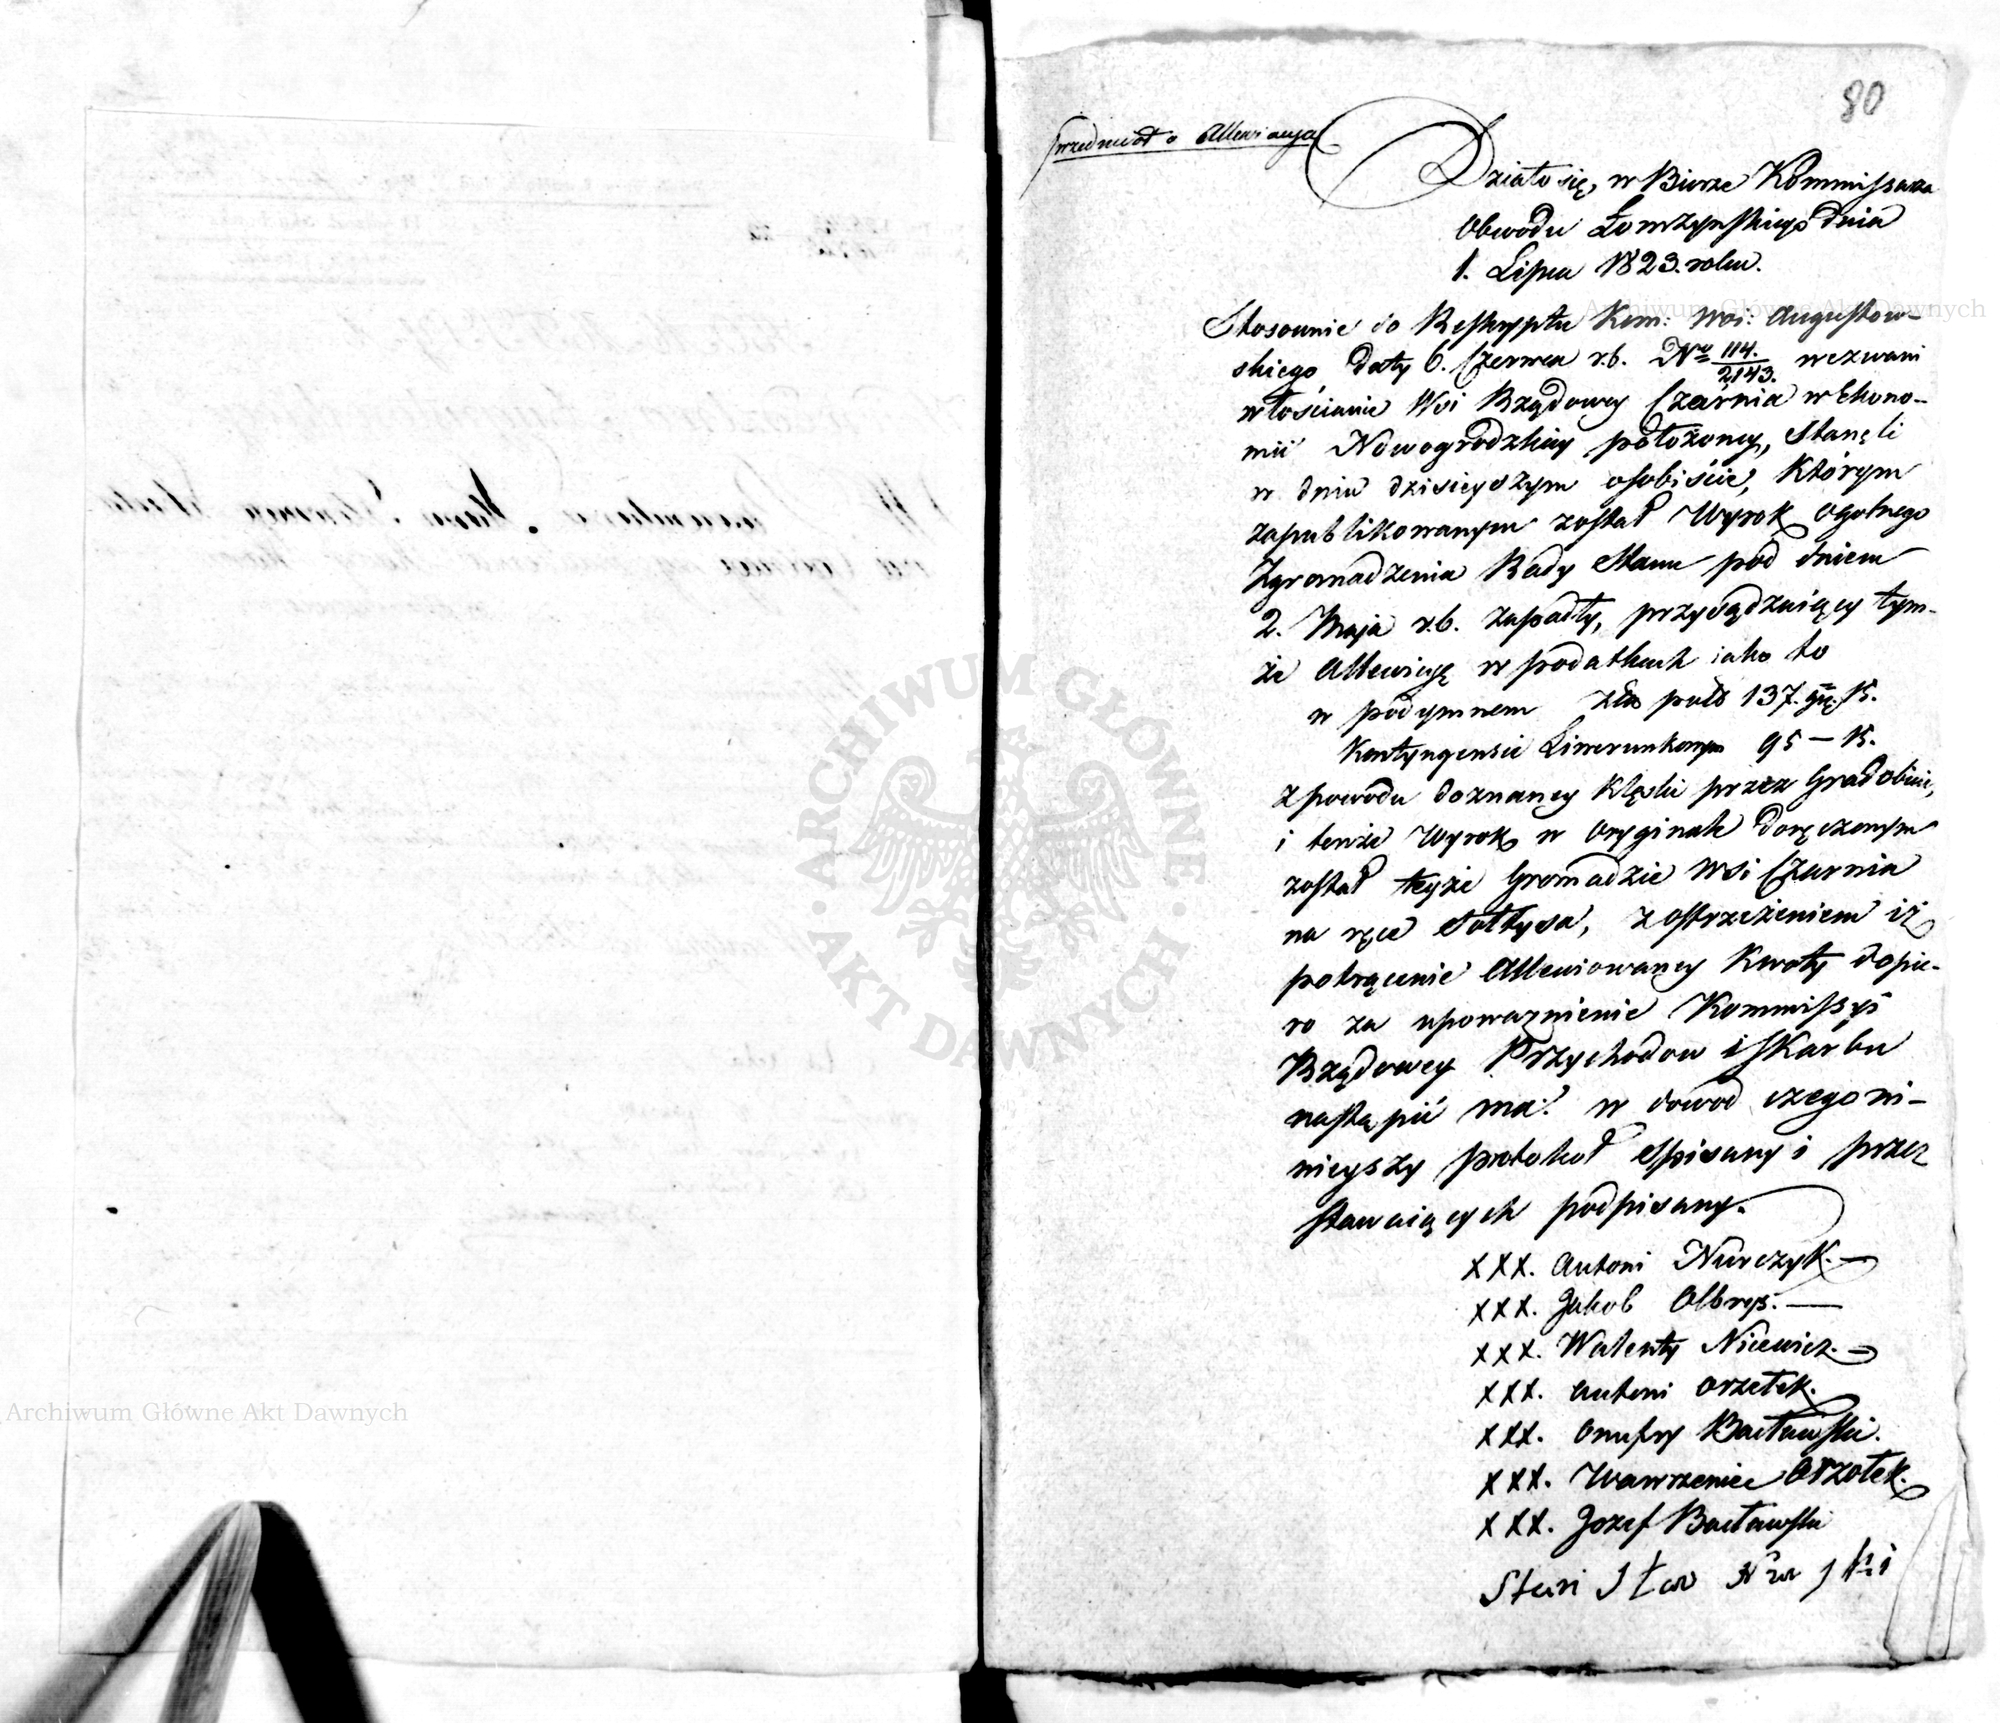 80
przedmiot o Allewiacyą
Działo się, w Biurze Kommissarza
Obwodu Łomżyńskiego dnia
1. Lipca 1823. roku.
Stosownie do Reskryptu Kom: Woi: Augustow-
skiego daty 6. Czerwca r.b. Nro 114./2143. wezwani
włościanie Wsi Rządowey Czarnia w Ekono-
mii Nowogrodzkiey położoney, Stanęli
w dniu dzisieyszym osobiście, Którym
zapublikowanym został Wyrok Ogolnego
Zgromadzenia Rady Stanu pod dniem
2. Maja r.b. zapadły, przysądzaiący tym-
że Allewiacyą w podatkach iako to
w podymnem złp 137. gr. 15.
Kontyngensie Liwerunkowym 95 — 15.
z powodu doznaney Klęski przez Gradobicie,
i tenże Wyrok w Oryginale doręczonym
został teyże Gromadzie Wsi Czarnia
na ręce Sołtysa, z ostrzeżeniem iż
potrącenie Allewiowaney Kwoty dopie-
ro za upoważnienie Kommissyi
Rządowey Przychodow i Skarbu
nastąpić ma. w dowod czego ni-
nieyszy protokoł Spisany i przez
stawaiących podpisany.
XXX. Antoni Nurczyk. —
XXX. Jakob Olbrys. —
XXX. Walenty Nicewicz. —
XXX. Antoni Orzełek.
XXX. Onufry Bacławski.
XXX. Wawrzeniec Orzołek.
XXX. Jozef Bacławski
Archiwum Główne Akt Dawnych
ARCHIWUM GŁÓWNE · AKT DAWNYCH ·
Archiwum Główne Akt Dawnych